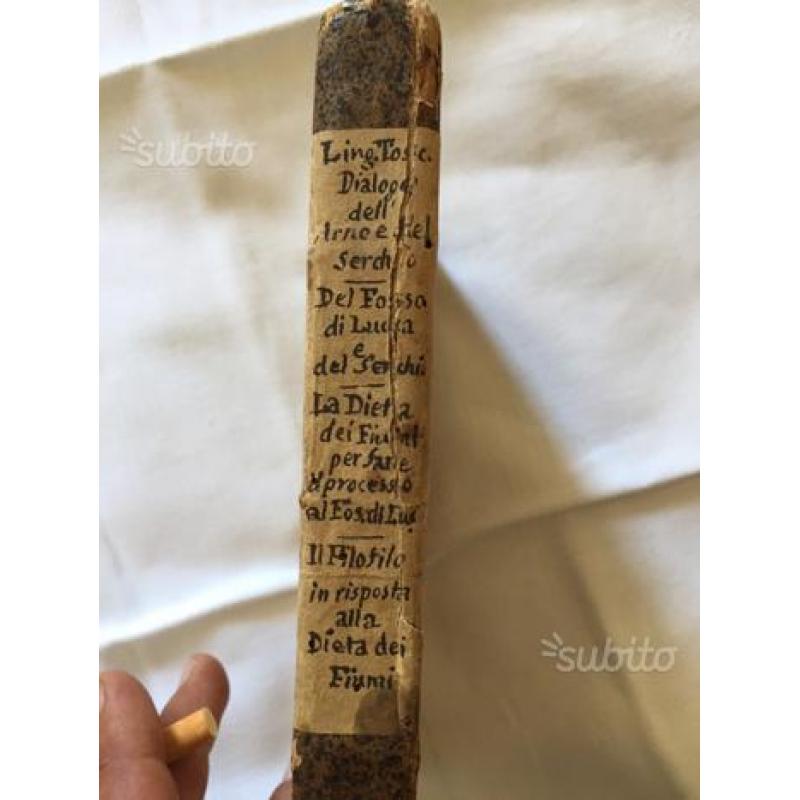 Ling. Tosc.
Dialogo
dell'
Arno e del
Serchio
Del Fosso
di Lucca
e
del Serchio
La Dieta
dei Fiumi
per fare
il processo
al Fos. di Luc
Il Filofilo
in risposta
alla
Dieta dei
Fiumi
subito
subito